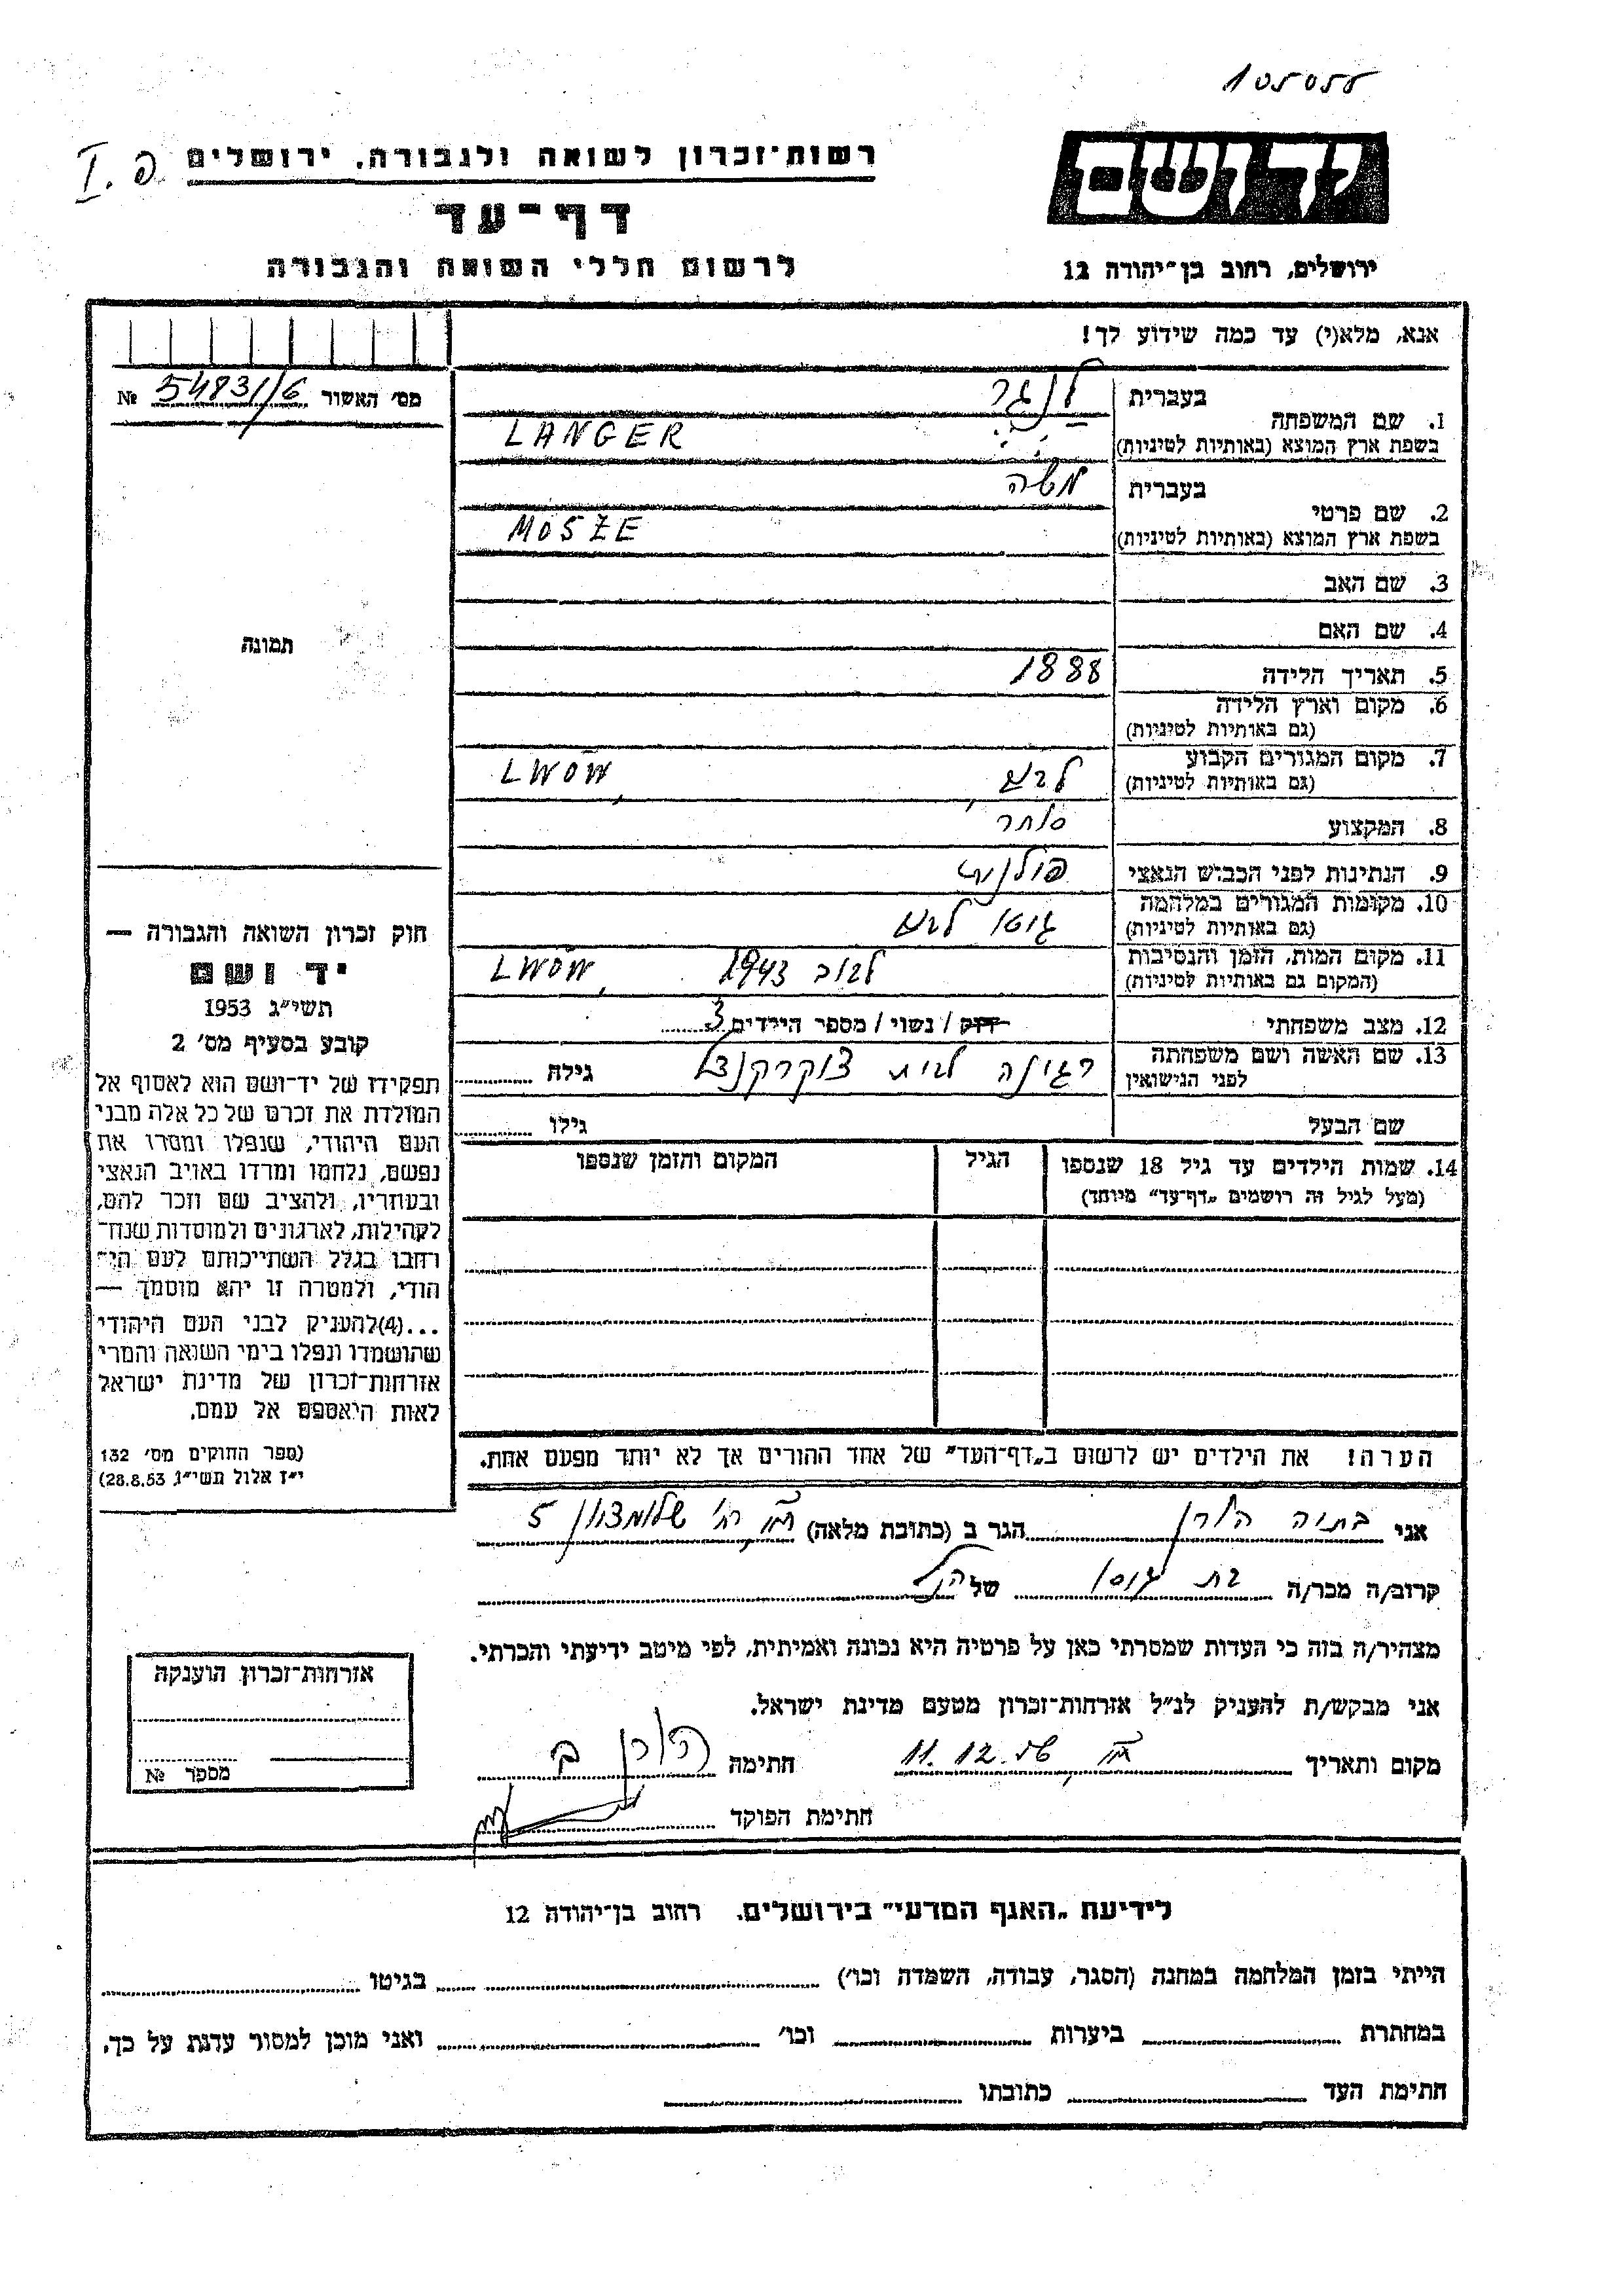 105055
I. פ
רשות־זכרון לשואה ולגבורה, ירושלים
ידושם
דף־עד
לרשום חללי השואה והגבורה
ירושלים, רחוב בן־יהודה 12
אנא, מלא(י) עד כמה שידוע לך!
מס׳ האשור 54831/6 №
1. שם המשפחה
בעברית לנגר
בשפת ארץ המוצא (באותיות לטיניות) LANGER
2. שם פרטי
בעברית משה
בשפת ארץ המוצא (באותיות לטיניות) MOSZE
3. שם האב
4. שם האם
תמונה
5. תאריך הלידה 1888
6. מקום וארץ הלידה
(גם באותיות לטיניות)
7. מקום המגורים הקבוע
(גם באותיות לטיניות) לבוב, LWÓW,
8. המקצוע סוחר
9. הנתינות לפני הכבוש הנאצי פולנית
10. מקומות המגורים במלחמה
(גם באותיות לטיניות) גטו לבוב
11. מקום המות, הזמן והנסיבות
(המקום גם באותיות לטיניות) לבוב 1943 LWÓW,
12. מצב משפחתי רווק / נשוי / מספר הילדים 3
13. שם האשה ושם משפחתה
לפני הנישואין רגינה לבית צוקרקנדל גילה
שם הבעל גילו
14. שמות הילדים עד גיל 18 שנספו
(מעל לגיל זה רושמים „דף־עד״ מיוחד)
הגיל
המקום והזמן שנספו
הערה! את הילדים יש לרשום ב„דף־העד״ של אחד ההורים אך לא יותר מפעם אחת.
חוק זכרון השואה והגבורה —
יד ושם
תשי״ג 1953
קובע בסעיף מס׳ 2
תפקידו של יד־ושם הוא לאסוף אל
המולדת את זכרם של כל אלה מבני
העם היהודי, שנפלו ומסרו את
נפשם, נלחמו ומרדו באויב הנאצי
ובעוזריו, ולהציב שם וזכר להם,
לקהילות, לארגונים ולמוסדות שנח־
רבו בגלל השתייכותם לעם הי־
הודי, ולמטרה זו יהא מוסמך —
...(4)להעניק לבני העם היהודי
שהושמדו ונפלו בימי השואה והמרי
אזרחות־זכרון של מדינת ישראל
לאות היאספם אל עמם.
(ספר החוקים מס׳ 132
י״ז אלול תשי״ג 28.8.53)
אני בתיה הורן הגר ב (כתובת מלאה) רח׳ שלומציון 5
קרוב/ה מכר/ה בת גיסו של הנ״ל
מצהיר/ה בזה כי העדות שמסרתי כאן על פרטיה היא נכונה ואמיתית, לפי מיטב ידיעתי והכרתי.
אני מבקש/ת להעניק לנ״ל אזרחות־זכרון מטעם מדינת ישראל.
מקום ותאריך 11.12.56 חתימה הורן ב
חתימת הפוקד
אזרחות־זכרון הוענקה
מספר №
לידיעת „האגף המדעי״ בירושלים, רחוב בן־יהודה 12
הייתי בזמן המלחמה במחנה (הסגר, עבודה, השמדה וכו׳) בגיטו
במחתרת ביערות וכו׳ ואני מוכן למסור עדות על כך.
חתימת העד כתובתו